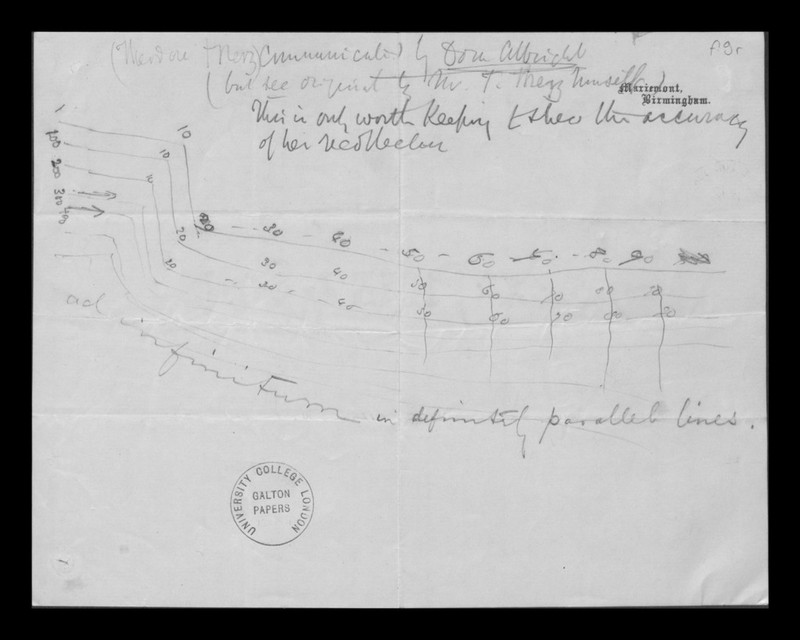 (Theodore Merz) Communicated by Dora Albright
f9r
(but see original by Mr. T. Merz himself)
Mariemont,
Birmingham.
This is only worth keeping to shew the accuracy
of her recollection
1 10
100 10
200 10
300
400
20 30 40 50 60 80 90
20 30 40 50 60 70
20 30 40 50 60 70 80
ad infinitum in definitely parallel lines.
UNIVERSITY COLLEGE LONDON
GALTON
PAPERS